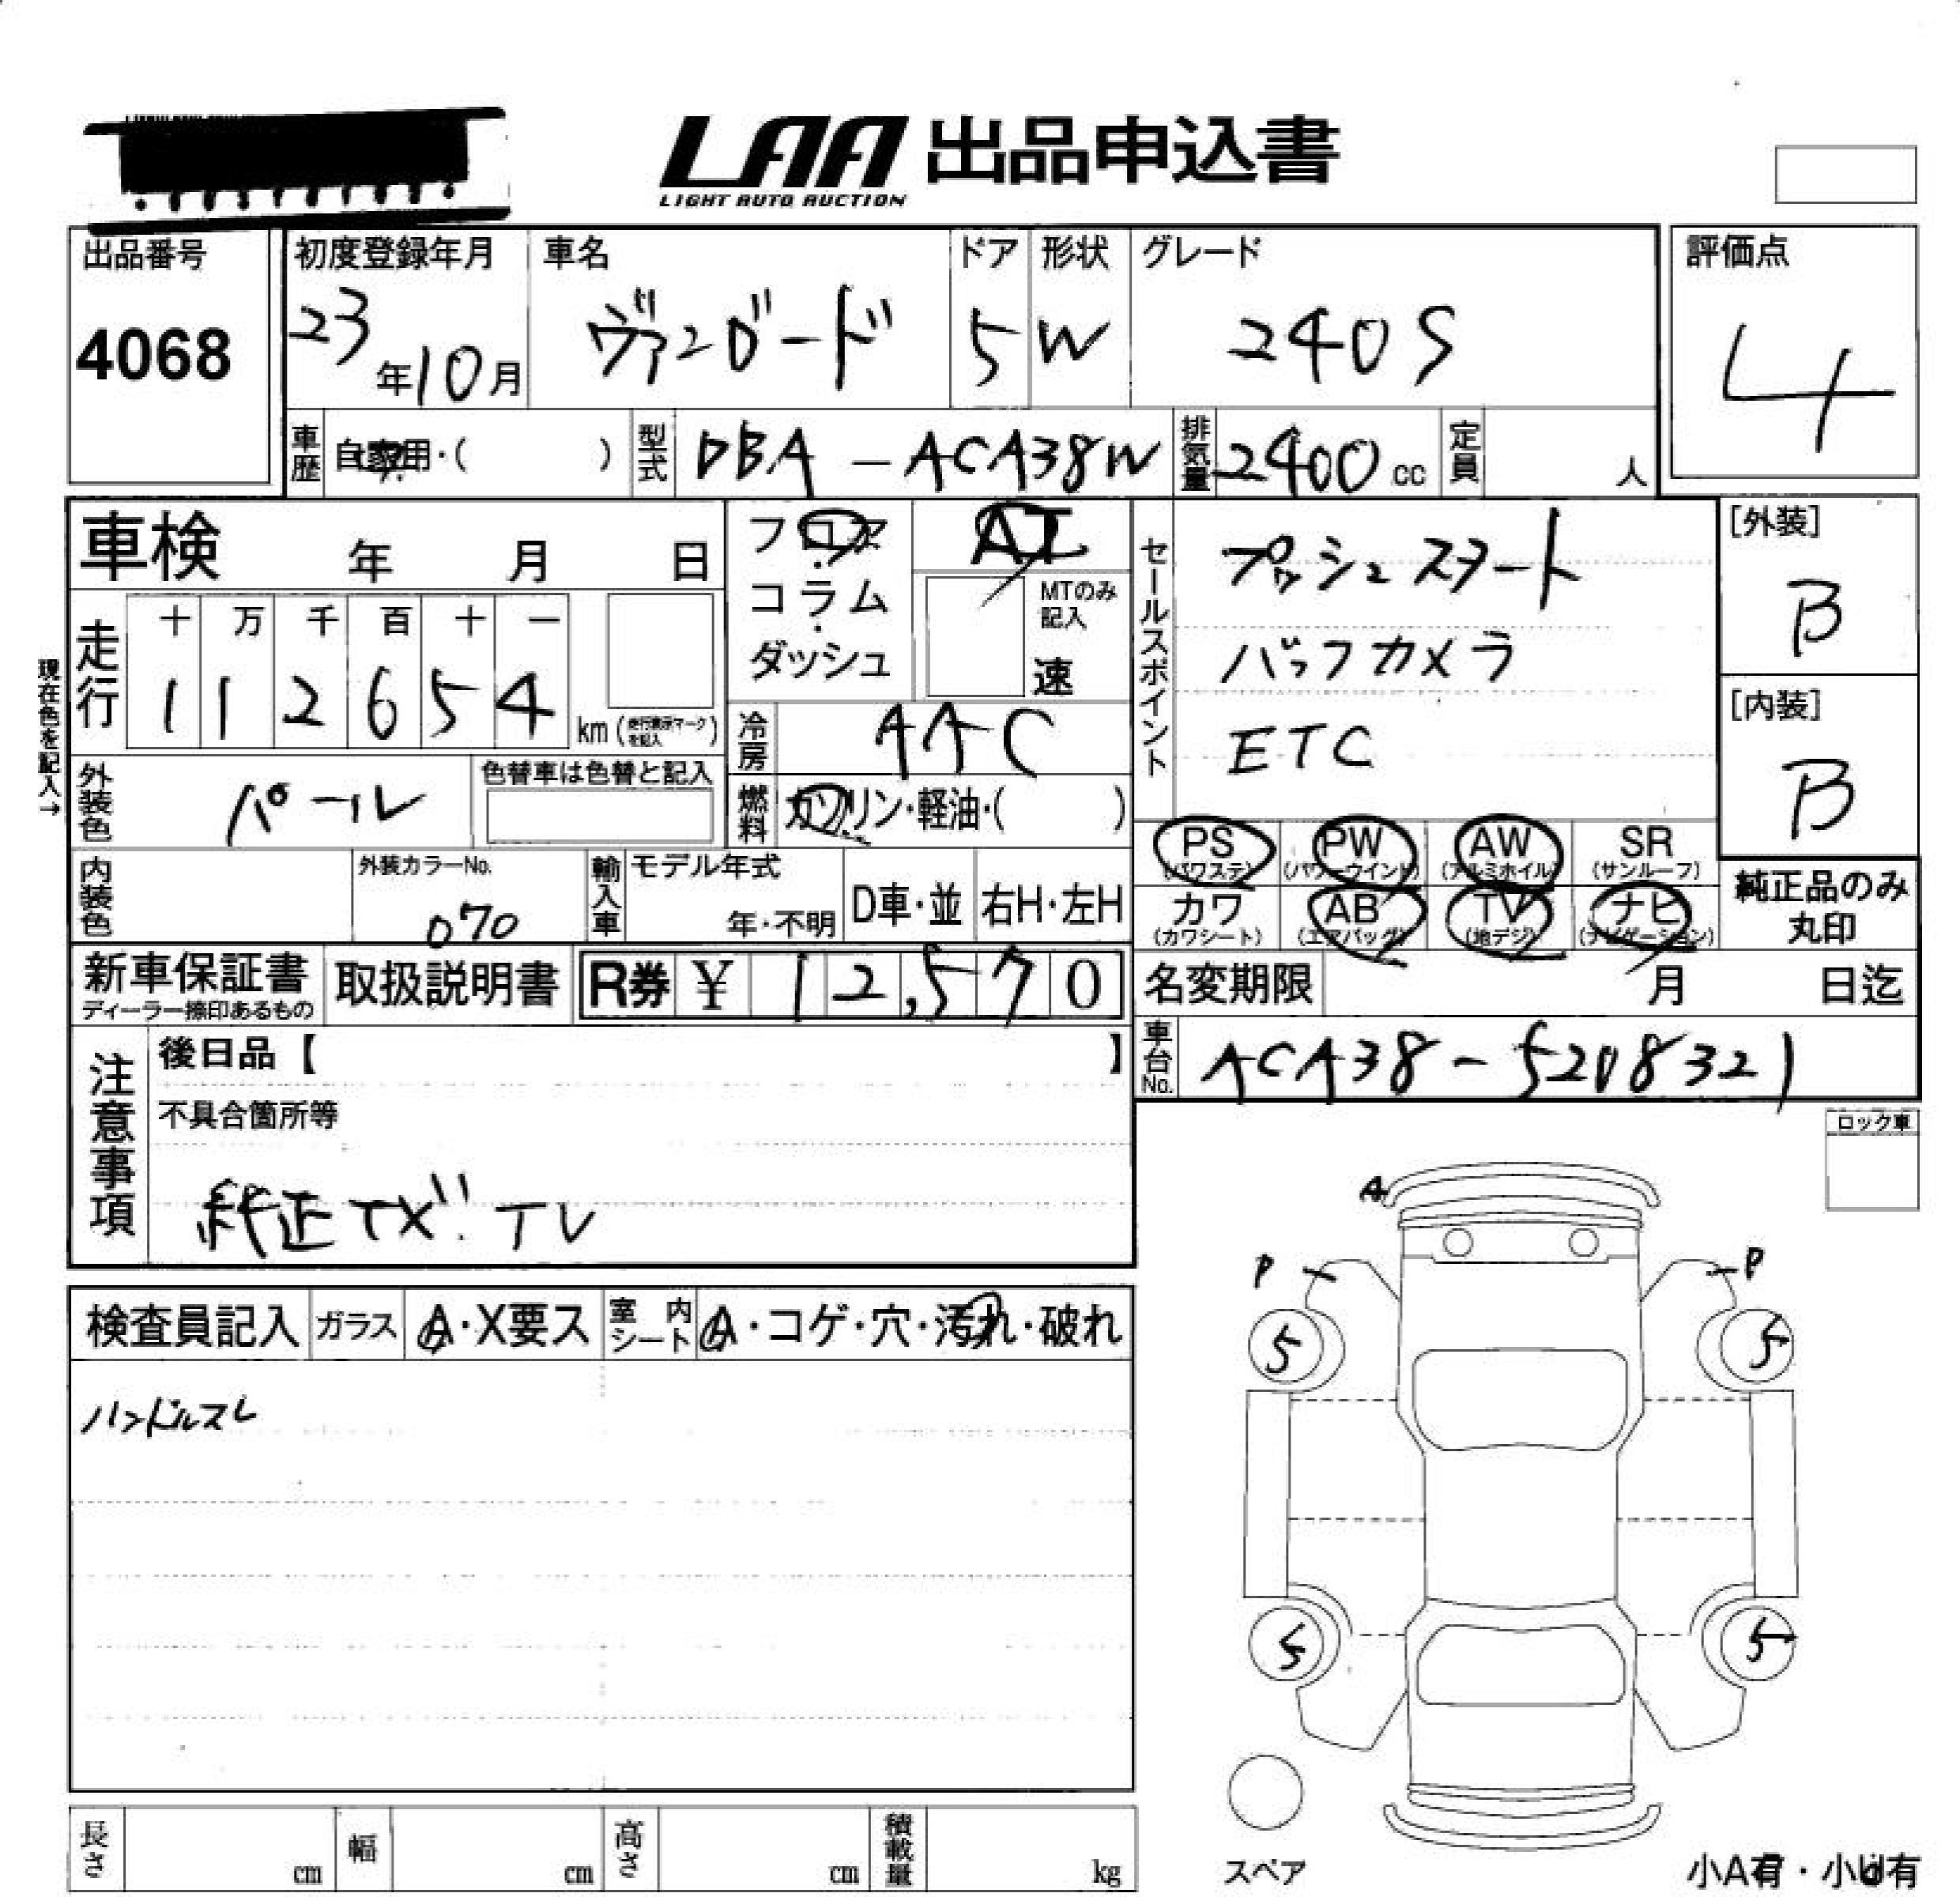 LAA 出品申込書
LIGHT AUTO AUCTION
出品番号 初度登録年月 車名 ドア 形状 グレード 評価点
4068 23年10月 ヴァンガード 5 W 240S 4
車歴 自家用・( ) 型式 DBA-ACA38W 排気量 2400cc 定員 人
車検 年 月 日
フロア・コラム・ダッシュ
AT
MTのみ記入
速
セールスポイント
プッシュスタート
バックカメラ
ETC
[外装]
B
[内装]
B
現在色を記入→
走行 十 万 千 百 十 一
1 1 2 6 5 4 km(走行表示マークを記入)
冷房 AAC
外装色 パール 色替車は色替と記入
燃料 ガソリン・軽油・( )
PS (パワステ) PW (パワーウインド) AW (アルミホイル) SR (サンルーフ)
カワ (カワシート) AB (エアバッグ) TV (地デジ) ナビ (ナビゲーション)
純正品のみ
丸印
内装色 外装カラーNo. 070 輸入車 モデル年式 年・不明 D車・並 右H・左H
新車保証書 ディーラー捺印あるもの 取扱説明書 R券 ¥ 12,570
名変期限 月 日迄
車台No. ACA38-5208321
注意事項
後日品【 】
不具合箇所等
純正 TV
ロック車
検査員記入 ガラス A・X要ス 室内シート A・コゲ・穴・汚れ・破れ
ハンドルスレ
A
P P
5 5
5 5
スペア
長さ cm 幅 cm 高さ cm 積載量 kg
小A有・小U有